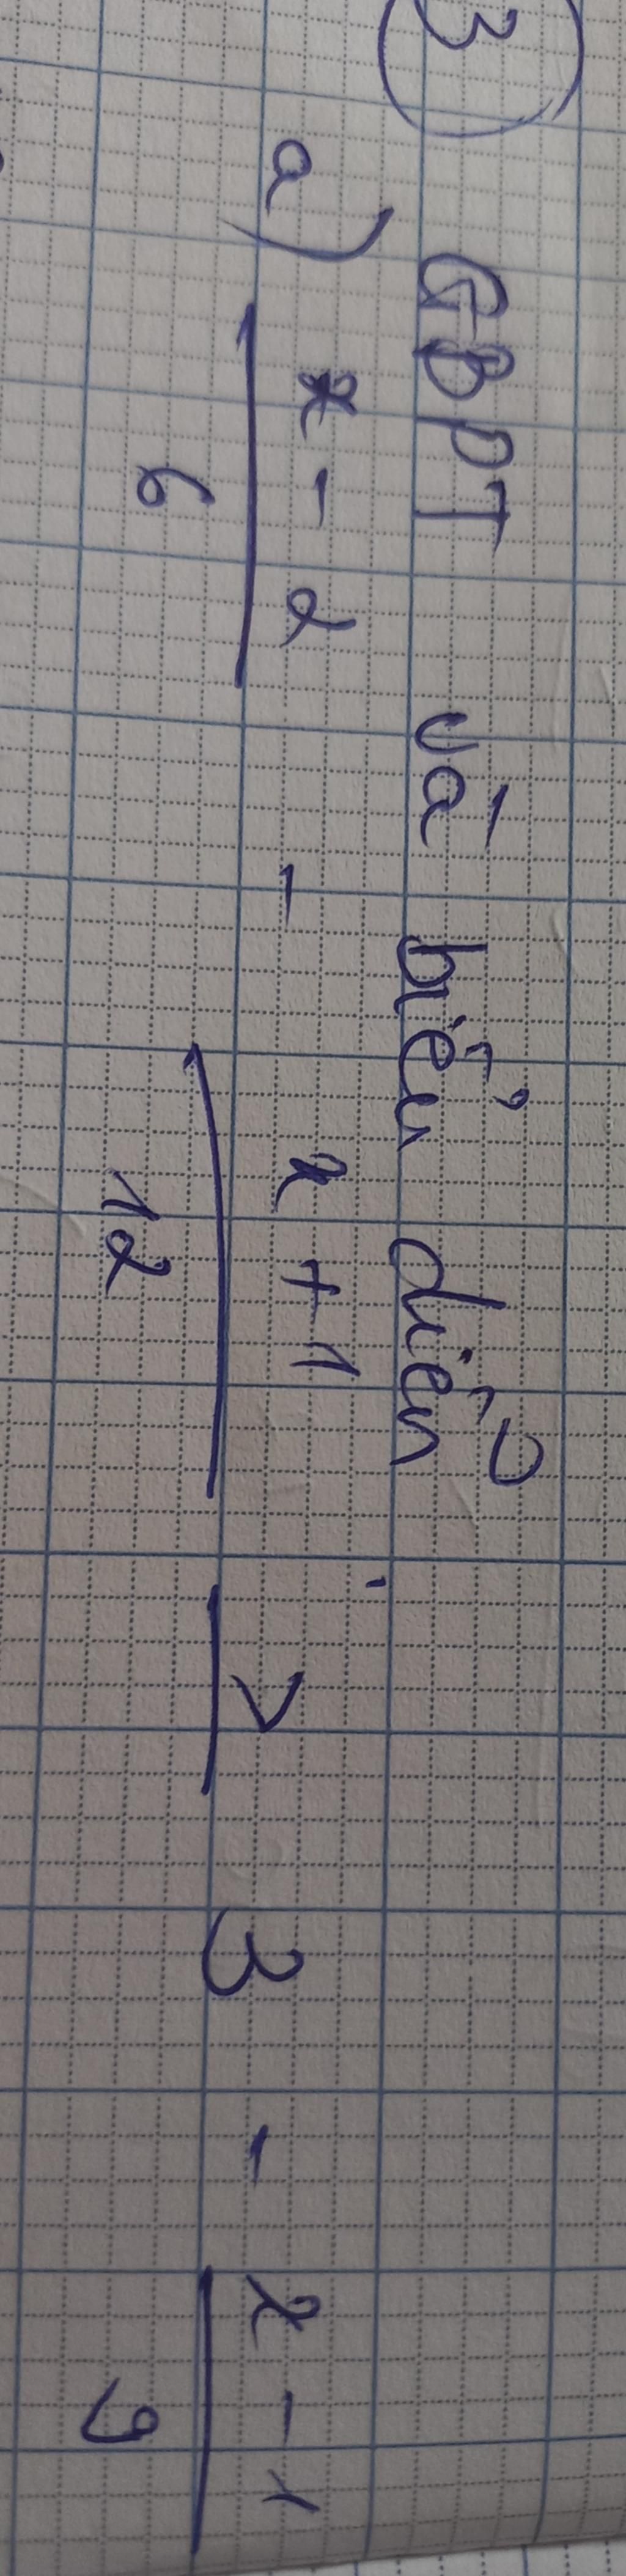 3 GBPT và biểu diễn
a) x - 2 / 6 - x + 1 / 12 ≥ 3 - x - 1 / 9